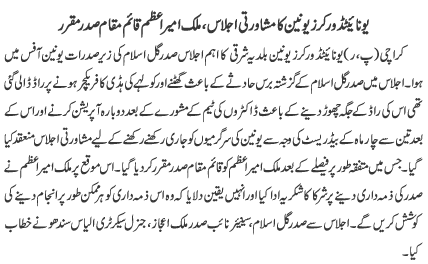 یونائیٹڈ ورکرز یونین کا مشاورتی اجلاس، ملک امیر اعظم قائم مقام صدر مقرر
کراچی (پ،ر) یونائیٹڈ ورکرز یونین بلدیہ شرقی کا اہم اجلاس صدر گل اسلام کی زیر صدارت یونین آفس میں
ہوا۔ اجلاس میں صدر گل اسلام کے گزشتہ برس حادثے کے باعث گھٹنے اور کولہے کی ہڈی کا فریکچر ہونے پر راڈ ڈالی گئی
تھی اس کی راڈ کے جگہ چھوڑ دینے کے باعث ڈاکٹروں کی ٹیم کے مشورے کے بعد دوبارہ آپریشن کرنے اور اس کے
بعد تین سے چار ماہ کے بیڈ ریسٹ کی وجہ سے یونین کی سرگرمیوں کو جاری رکھنے رکھنے کے لیے مشاورتی اجلاس منعقد کیا
گیا۔ جس میں متفقہ طور پر فیصلے کے بعد ملک امیر اعظم کو قائم مقام صدر مقرر کر دیا گیا۔ اس موقع پر ملک امیر اعظم نے
صدر کی ذمہ داری دینے پر شرکا کا شکریہ ادا کیا اور انہیں یقین دلایا کہ وہ اس ذمہ داری کو ہر ممکن طور پر انجام دینے کی
کوشش کریں گے۔ اجلاس سے صدر گل اسلام، سینیئر نائب صدر ملک اعجاز، جنرل سیکرٹری الیاس سندھو نے خطاب
کیا۔